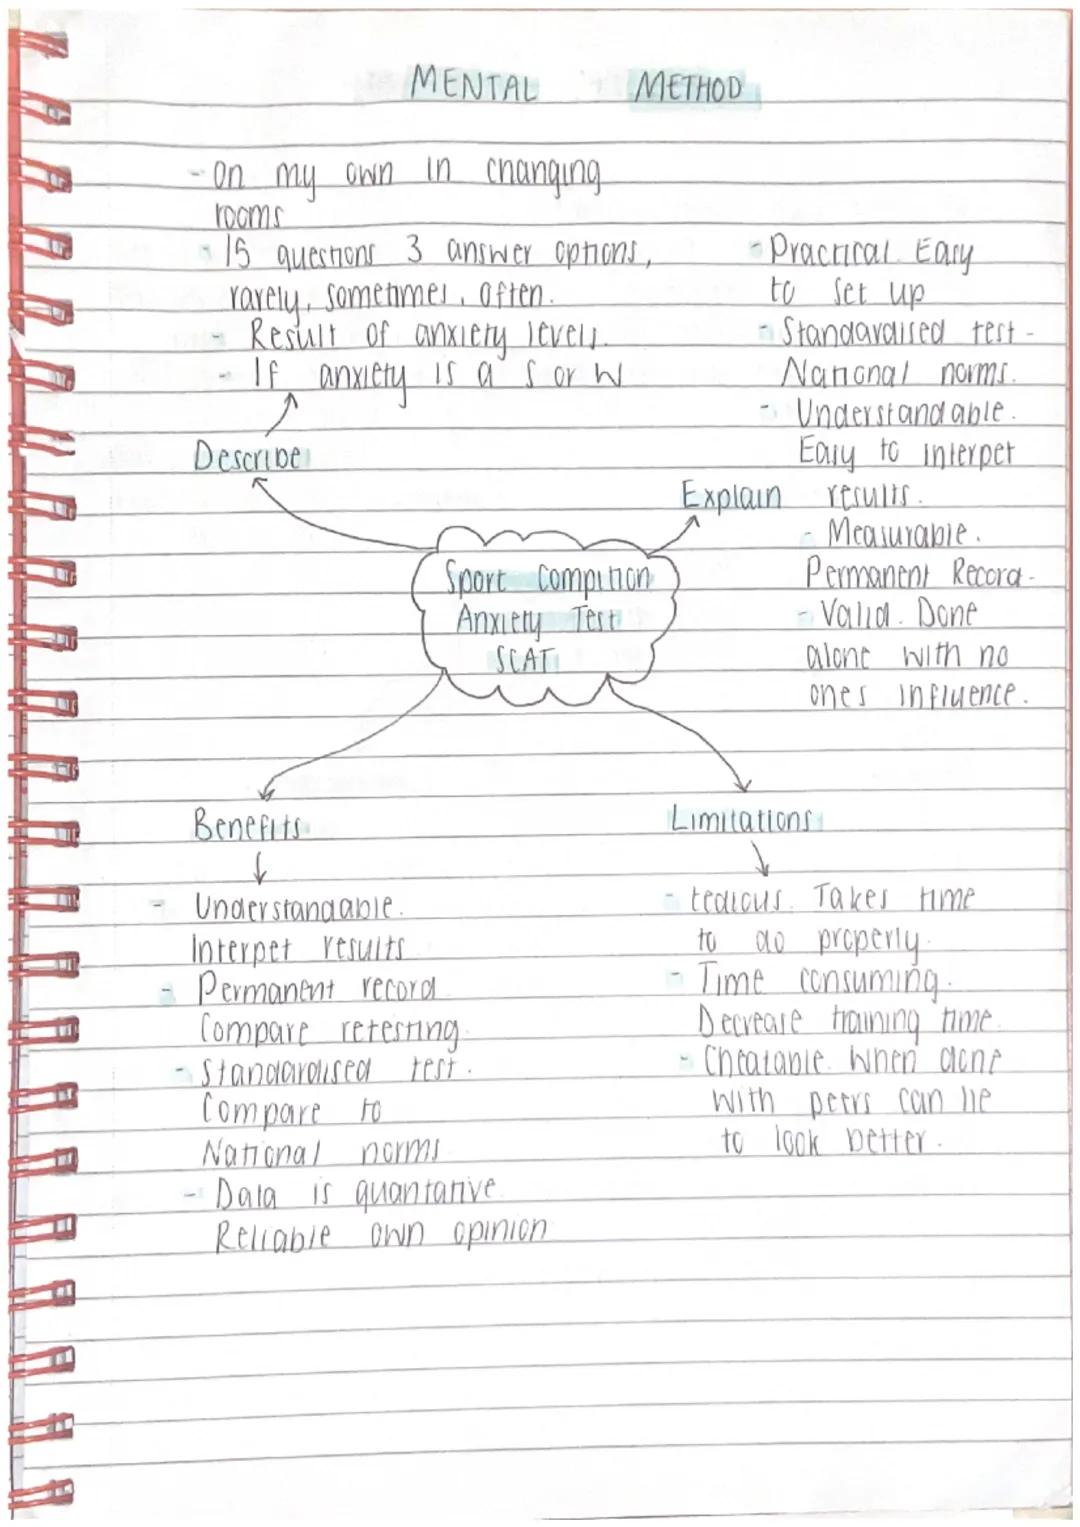 MENTAL METHOD
- On my own in changing
rooms
- 15 questions 3 answer options,
rarely, sometimes, often.
- Result of anxiety levels.
- If anxiety is a S or W
Describe
- Practical. Easy
to set up
- Standardised test -
National norms.
- Understandable.
Easy to interpet
results.
- Measurable.
Permanent Record -
- Valid. Done
alone with no
ones influence.
Explain
Sport Compition
Anxiety Test
SCAT
Benefits
- Understandable.
Interpet results
- Permanent record
Compare retesting
- Standardised test.
Compare to
National norms
- Data is quantative
Reliable own opinion
Limitations
- tedious. Takes time
to do properly.
- Time consuming.
Decrease training time
- Cheatable. When done
with peers can lie
to look better.